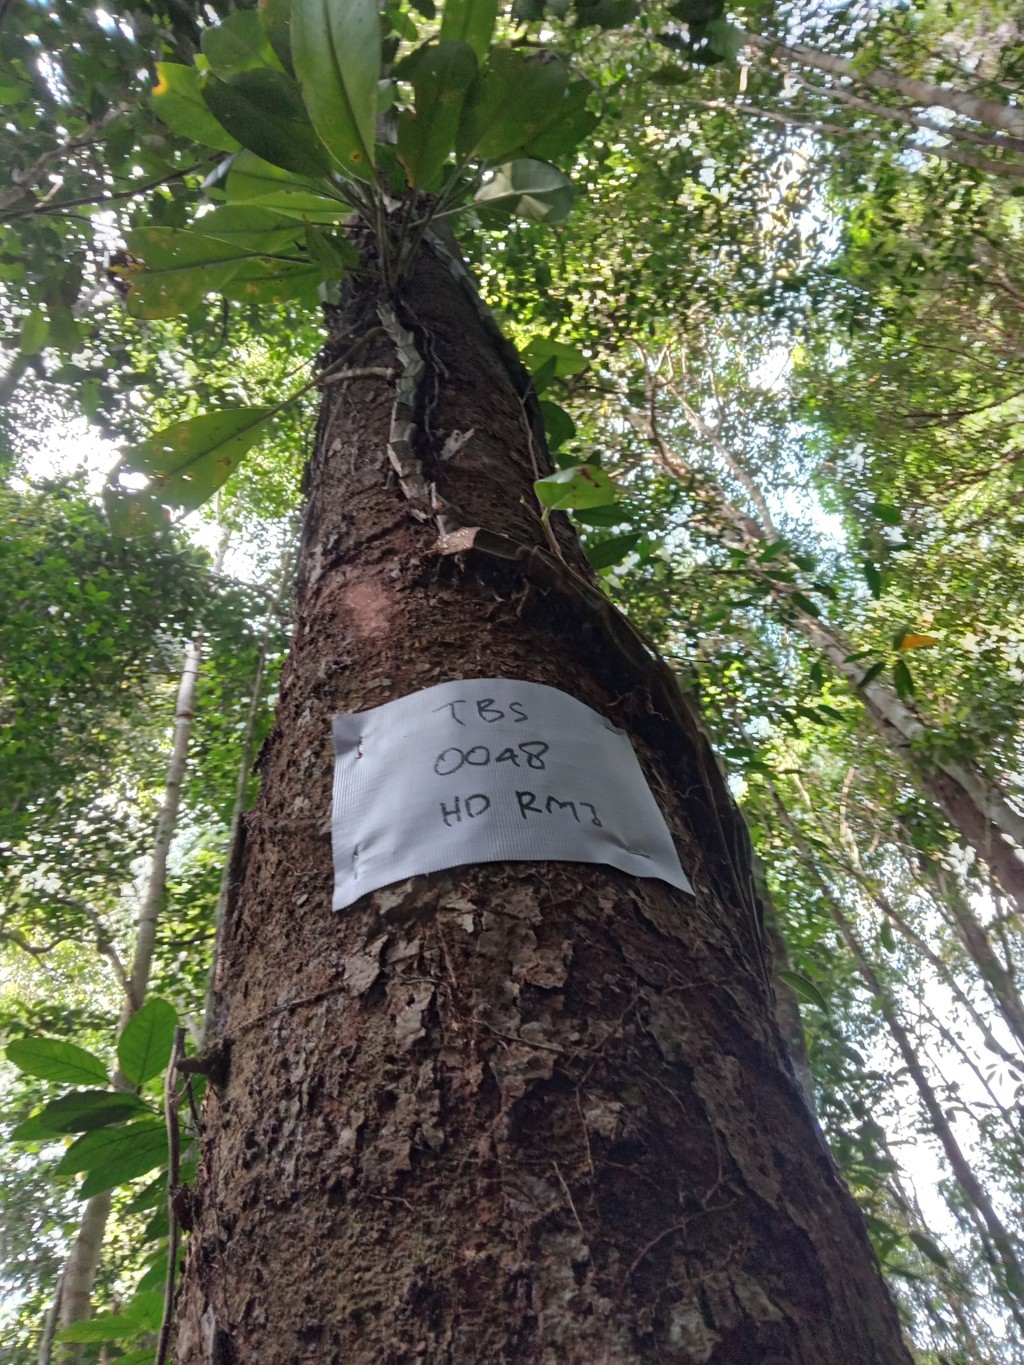 TBS
0048
HD RMJ